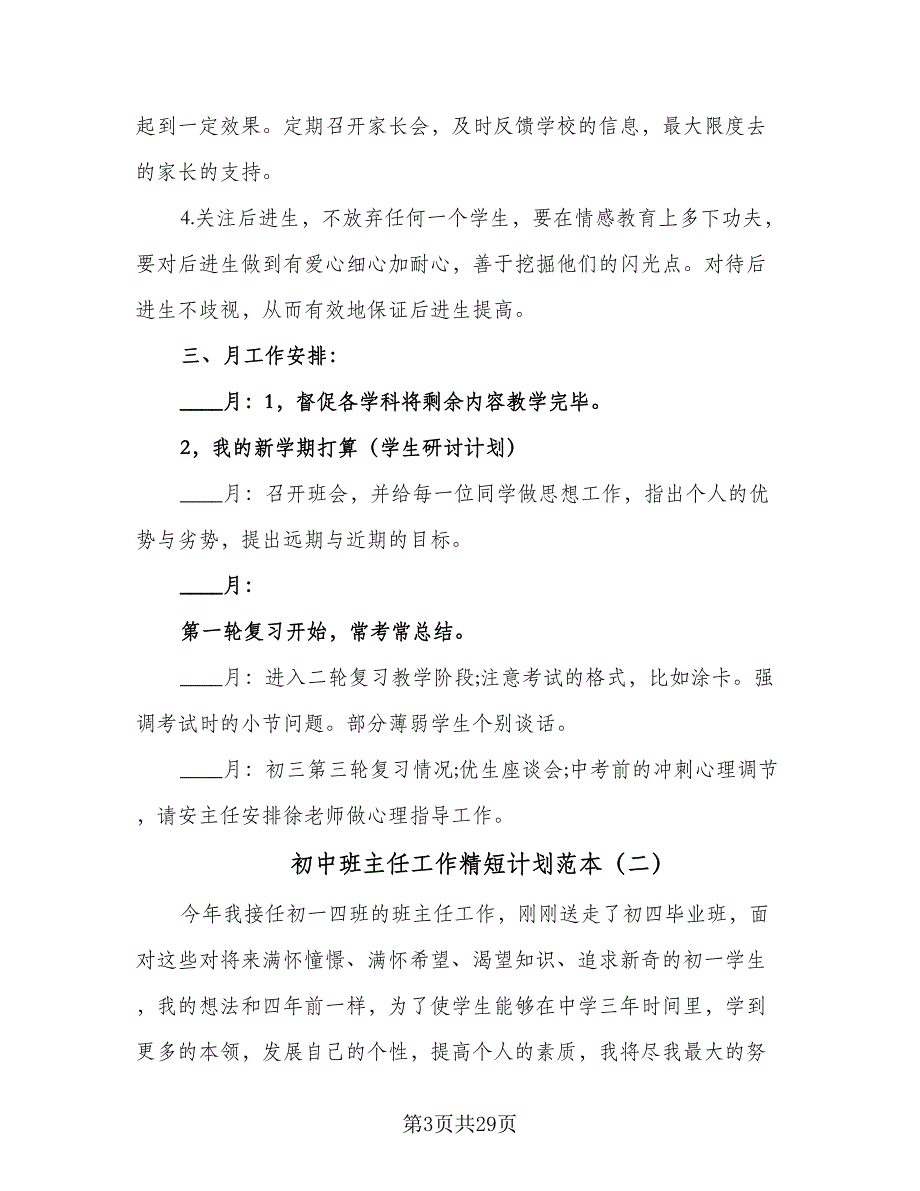 起到一定效果。定期召开家长会，及时反馈学校的信息，最大限度去
的家长的支持。
4.关注后进生，不放弃任何一个学生，要在情感教育上多下功夫，
要对后进生做到有爱心细心加耐心，善于挖掘他们的闪光点。对待后
进生不歧视，从而有效地保证后进生提高。
三、月工作安排：
____月：1，督促各学科将剩余内容教学完毕。
2，我的新学期打算（学生研讨计划）
____月：召开班会，并给每一位同学做思想工作，指出个人的优
势与劣势，提出远期与近期的目标。
____月：
第一轮复习开始，常考常总结。
____月：进入二轮复习教学阶段;注意考试的格式，比如涂卡。强
调考试时的小节问题。部分薄弱学生个别谈话。
____月：初三第三轮复习情况;优生座谈会;中考前的冲刺心理调节
，请安主任安排徐老师做心理指导工作。
初中班主任工作精短计划范本（二）
今年我接任初一四班的班主任工作，刚刚送走了初四毕业班，面
对这些对将来满怀憧憬、满怀希望、渴望知识、追求新奇的初一学生
，我的想法和四年前一样，为了使学生能够在中学三年时间里，学到
更多的本领，发展自己的个性，提高个人的素质，我将尽我最大的努
第3页共29页